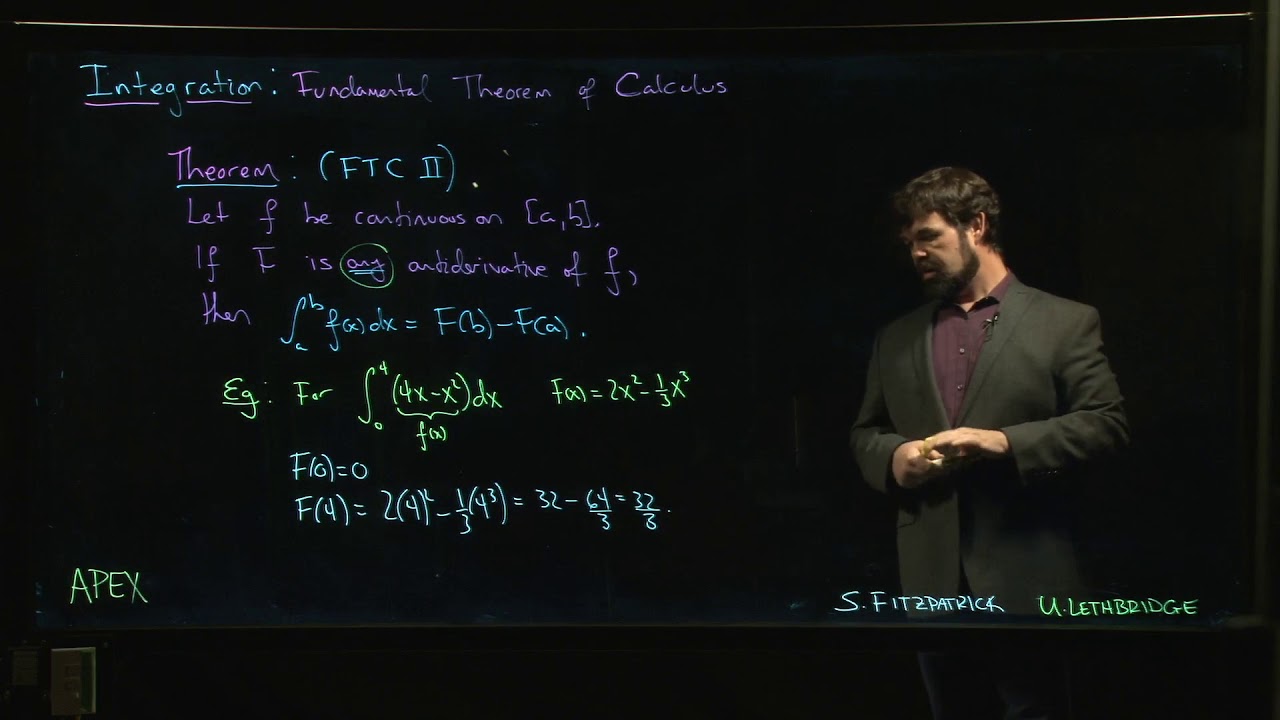 Integration: Fundamental Theorem of Calculus
Theorem: (FTC II)
Let f be continuous on [a,b].
If F is any antiderivative of f,
then ∫_a^b f(x)dx = F(b)-F(a).
Eg: For ∫_0^4 (4x-x²)dx F(x)=2x²-1/3x³
f(x)
F(0)=0
F(4)=2(4)²-1/3(4³)=32-64/3=32/3.
APEX
S. FITZPATRICK U. LETHBRIDGE